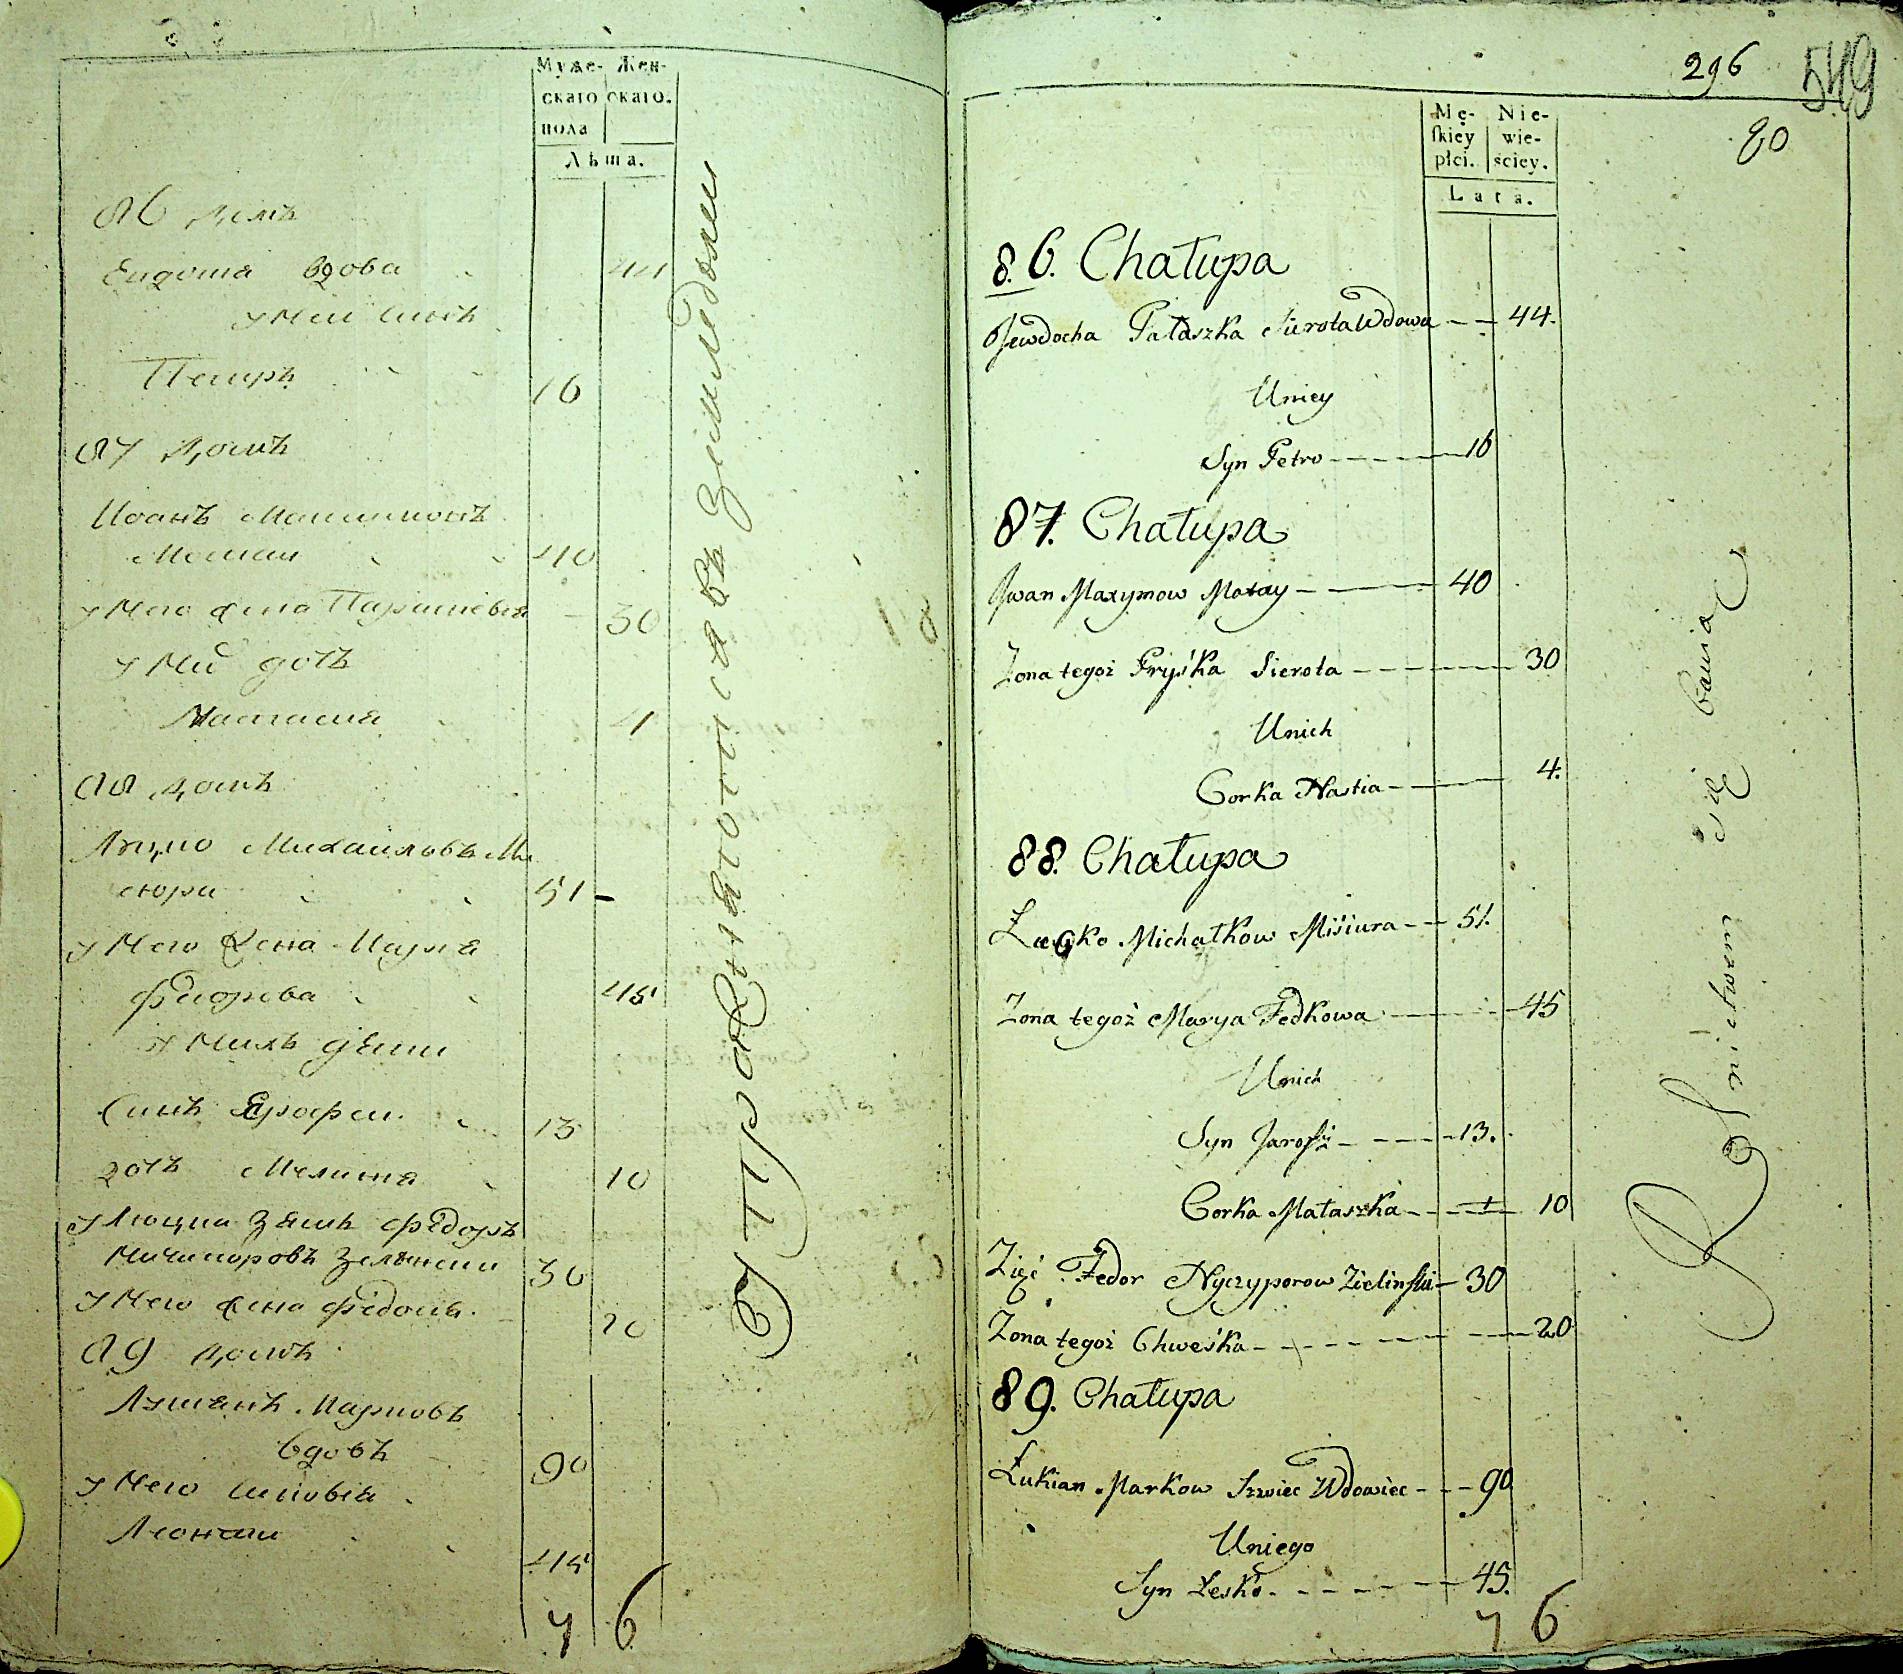 Муже- Жен-
скаго скаго.
пола
Лѣта.
86 домъ
Евдошя вдова 44
у неи сынъ
Петръ 16
87 домъ
Иванъ Максимовъ
40
у него жена Параскевья 30
у них дочь
Настасия 4
88 домъ
Михаиловъ Ми
сюра 51
у него жена Марья
Федорова 45
у нихъ дѣти
Сынъ Ерофеи 13
дочь 10
зять Федоръ
Ничипоровъ Зелински 30
у него жена Федося 20
89 домъ
Лукянъ Марковъ
вдовъ 90
у него сыновья
45
7 6
Упражняются въ земледелии
296
549
80
Mę- Nie-
skiey wie-
płci. sciey.
Lata.
86. Chałupa
Jewdocha Pałaszka Sierota Wdowa 44.
Uniey
Syn Petro 16
87. Chałupa
Jwan Maxymow Motay 40
Zona tegoż Pryśka Sierota 30
Unich
Corka Nastia 4.
88. Chałupa
Łucko Michałkow Misiura 51.
Zona tegoż Marya Fedkowa 45
Unich
Syn Jarofii 13.
Corka Małaszka 10
Zięć Fedor Nyczyporow Zielinski 30
Zona tegoż Chweśka 20
89. Chałupa
Łukian Markow Szwiec Wdowiec 90
Uniego
Syn Lesko 45.
7 6
Rolnictwem się bawią